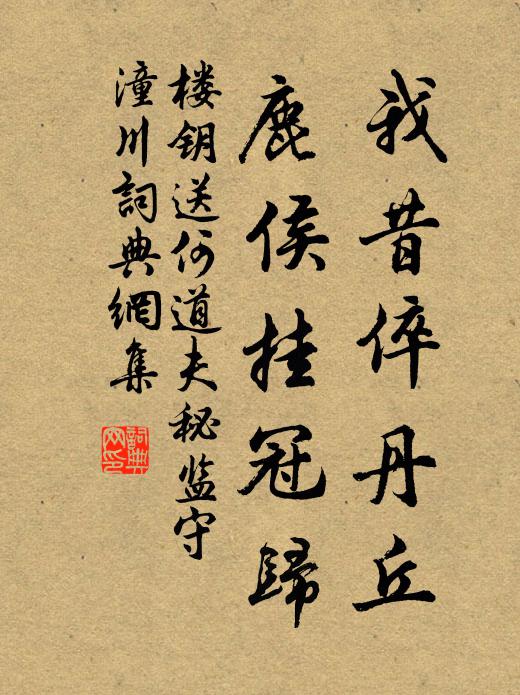 我昔倅丹丘
鹿侯挂冠歸
楼钥送何道夫秘监守
潼川詞典網集
詞典網印